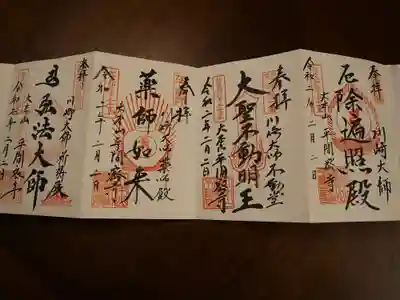 奉拝
川崎大師
厄除遍照殿
大本山平間寺
令和二年二月二日
奉拝
川崎大師不動堂
大聖不動明王
大本山平間寺
令和二年二月二日
奉拝
川崎大師薬師殿
薬師如来
大本山平間寺
令和二年二月二日
奉拝
川崎大師祈祷殿
法大師
大本山平間寺
令和二年二月二日